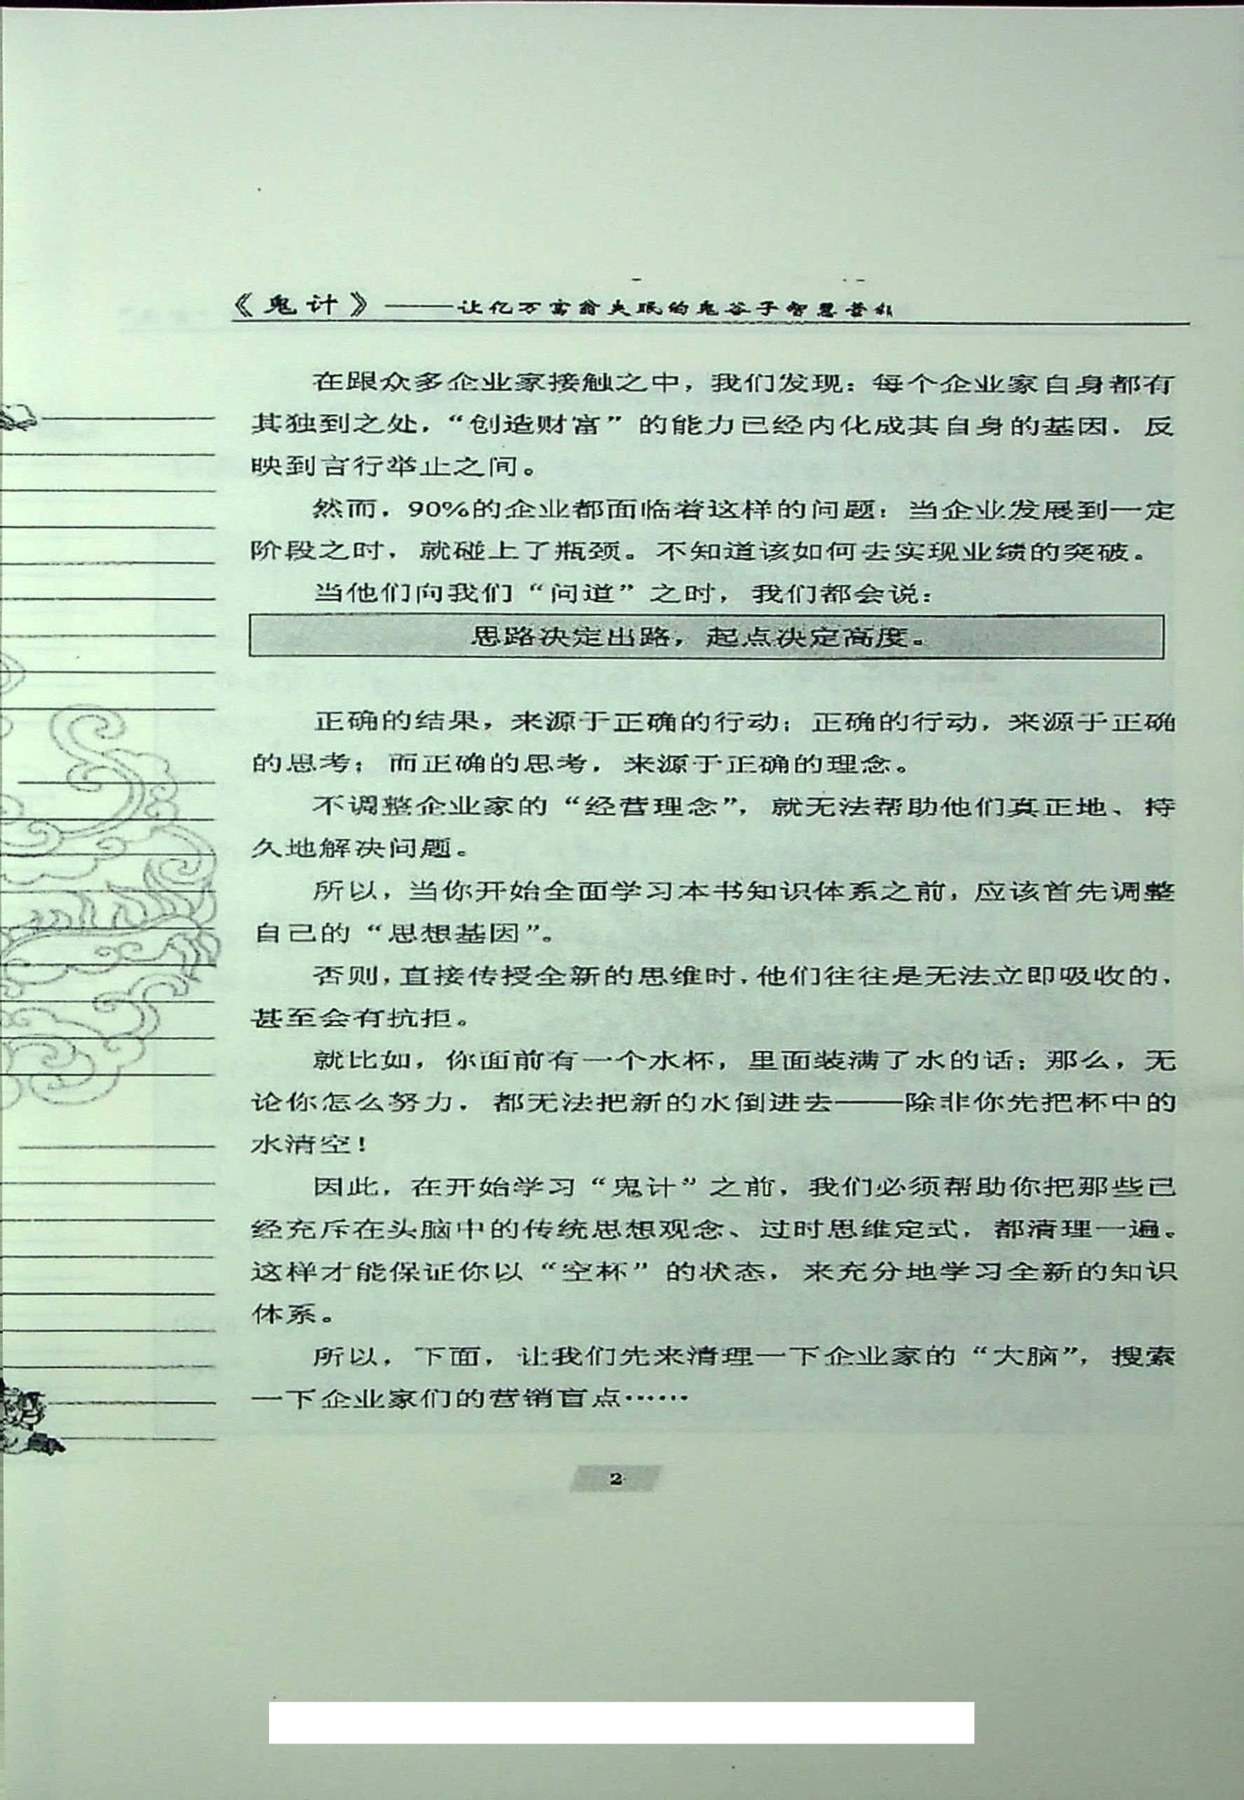 《鬼计》——让亿万富翁失眠的鬼谷子智慧营销
在跟众多企业家接触之中，我们发现：每个企业家自身都有
其独到之处，“创造财富”的能力已经内化成其自身的基因，反
映到言行举止之间。
然而，90%的企业都面临着这样的问题：当企业发展到一定
阶段之时，就碰上了瓶颈。不知道该如何去实现业绩的突破。
当他们向我们“问道”之时，我们都会说：
思路决定出路，起点决定高度。
正确的结果，来源于正确的行动；正确的行动，来源于正确
的思考；而正确的思考，来源于正确的理念。
不调整企业家的“经营理念”，就无法帮助他们真正地、持
久地解决问题。
所以，当你开始全面学习本书知识体系之前，应该首先调整
自己的“思想基因”。
否则，直接传授全新的思维时，他们往往是无法立即吸收的，
甚至会有抗拒。
就比如，你面前有一个水杯，里面装满了水的话；那么，无
论你怎么努力，都无法把新的水倒进去——除非你先把杯中的
水清空！
因此，在开始学习“鬼计”之前，我们必须帮助你把那些已
经充斥在头脑中的传统思想观念、过时思维定式，都清理一遍。
这样才能保证你以“空杯”的状态，来充分地学习全新的知识
体系。
所以，下面，让我们先来清理一下企业家的“大脑”，搜索
一下企业家们的营销盲点……
2